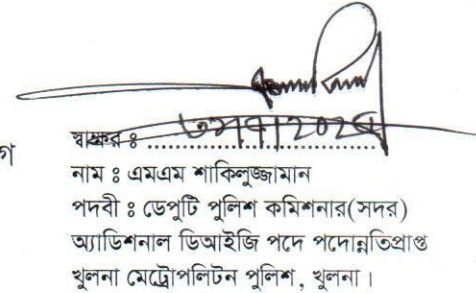 গ
স্বাক্ষর ঃ
নাম ঃ এমএম শাকিলুজ্জামান
পদবী ঃ ডেপুটি পুলিশ কমিশনার(সদর)
অ্যাডিশনাল ডিআইজি পদে পদোন্নতিপ্রাপ্ত
খুলনা মেট্রোপলিটন পুলিশ, খুলনা।